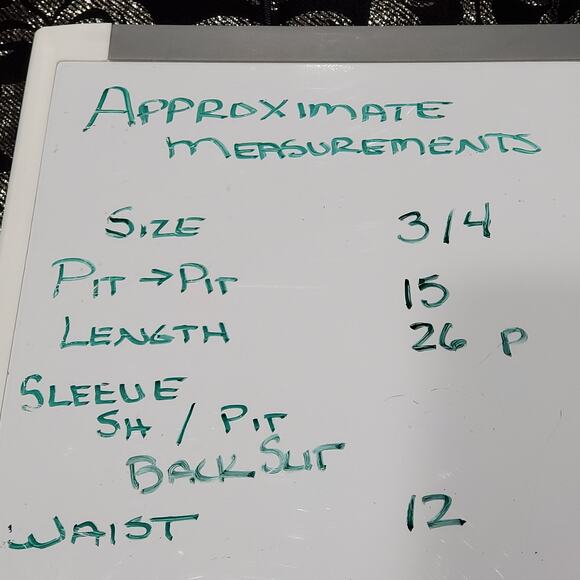 APPROXIMATE
MEASUREMENTS
SIZE 3/4
PIT → PIT 15
LENGTH 26 P
SLEEVE
SH / PIT
BACK SLIT
WAIST 12